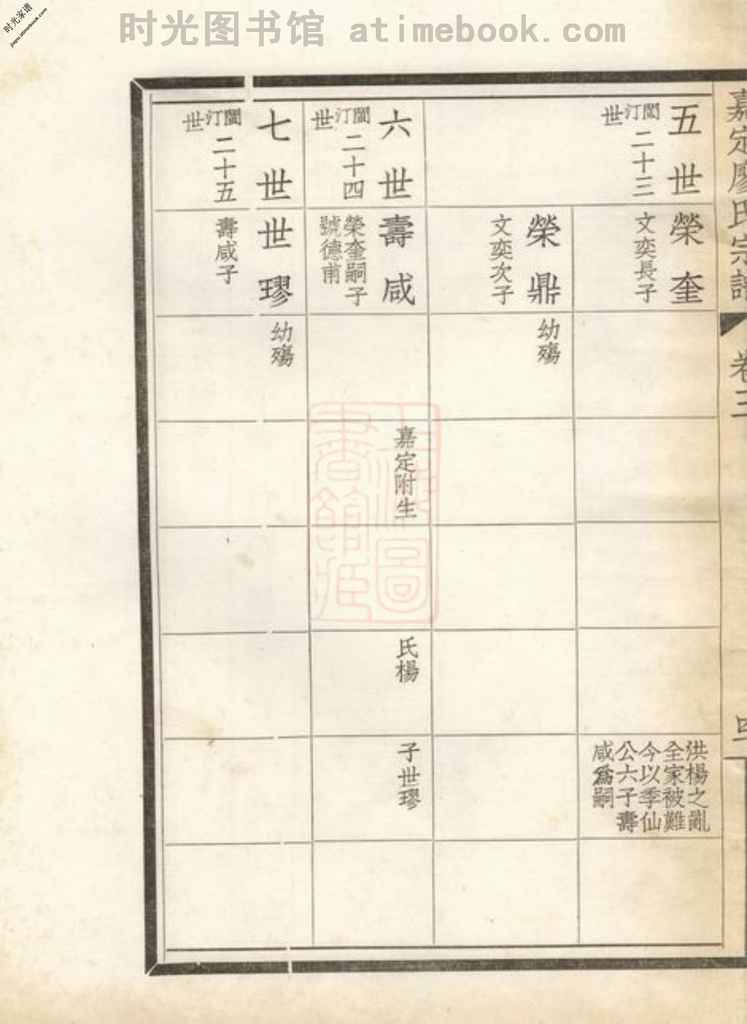 时光图书馆 atimebook.com
时光家谱
jiapu.atimebook.com
嘉定廖氏宗譜
卷三
四
五世
閩汀二十三世
榮奎
文奕長子
洪楊之亂
全家被難
今以季仙
公六子壽
咸爲嗣
榮鼎
文奕次子
幼殤
六世
閩汀二十四世
壽咸
榮奎嗣子
號德甫
嘉定附生
氏楊
子世璆
七世
閩汀二十五世
世璆
壽咸子
幼殤